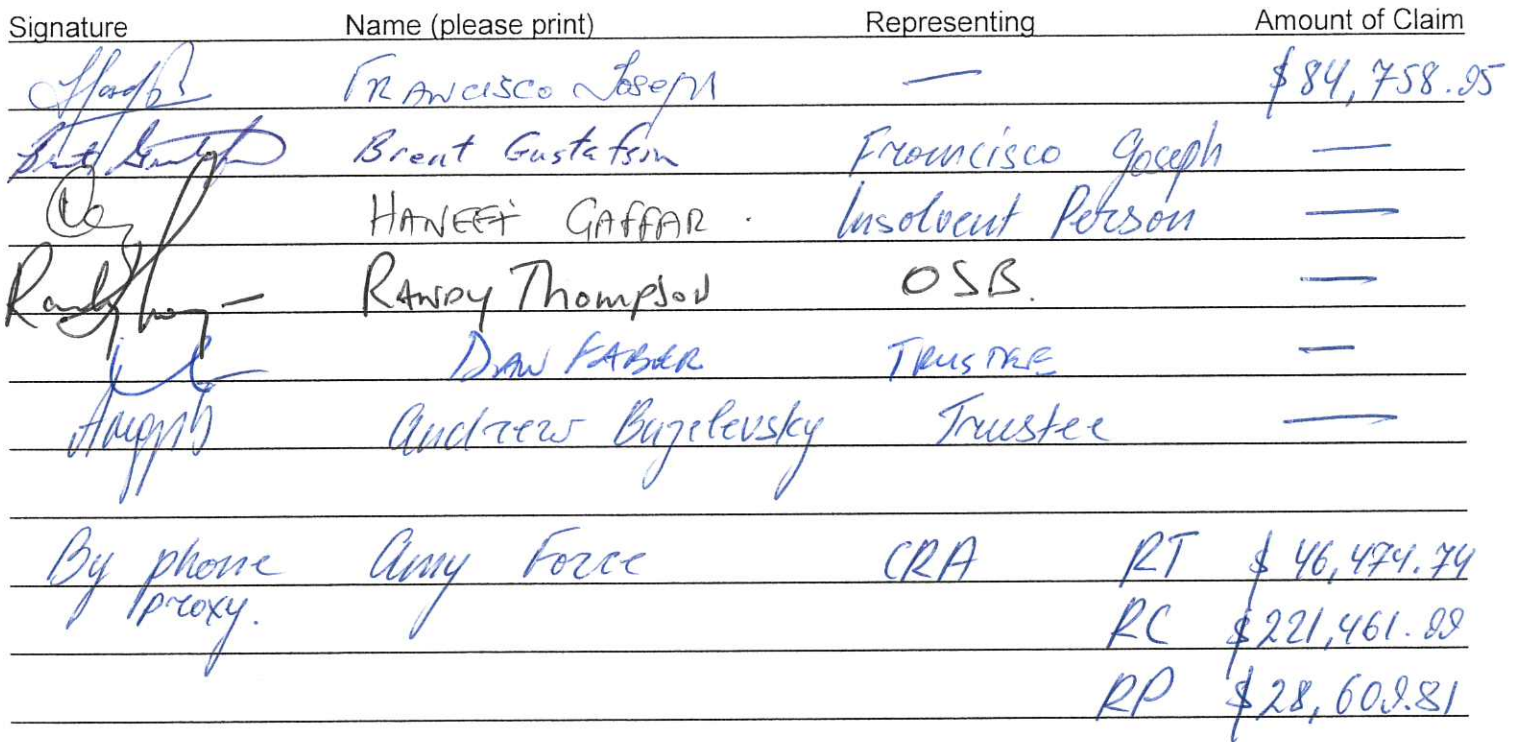 Signature Name (please print) Representing Amount of Claim
FRANCISCO Joseph — $84,758.95
Brent Gustafson Francisco Joseph —
HANEEF GAFFAR. Insolvent Person —
RANDY Thompson OSB. —
DAN FABER TRUSTEE —
Andrew Bazelevsky Trustee —
By phone Amy Force CRA RT $46,474.74
proxy. RC $221,461.99
RP $28,609.81